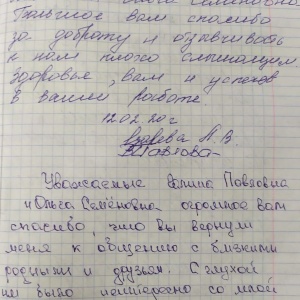 Семёновна
Большое вам спасибо
за доброту и отзывчивость
к нам плохо слышащим.
Здоровья, вам и успехов
в вашей работе.
12.02.20г
В.Павлова
Уважаемые Галина Павловна
и Ольга Семёновна огромное вам
спасибо, что вы вернули
меня к общению с близкими
родными и друзьям. С глухой
не было интересно со мной